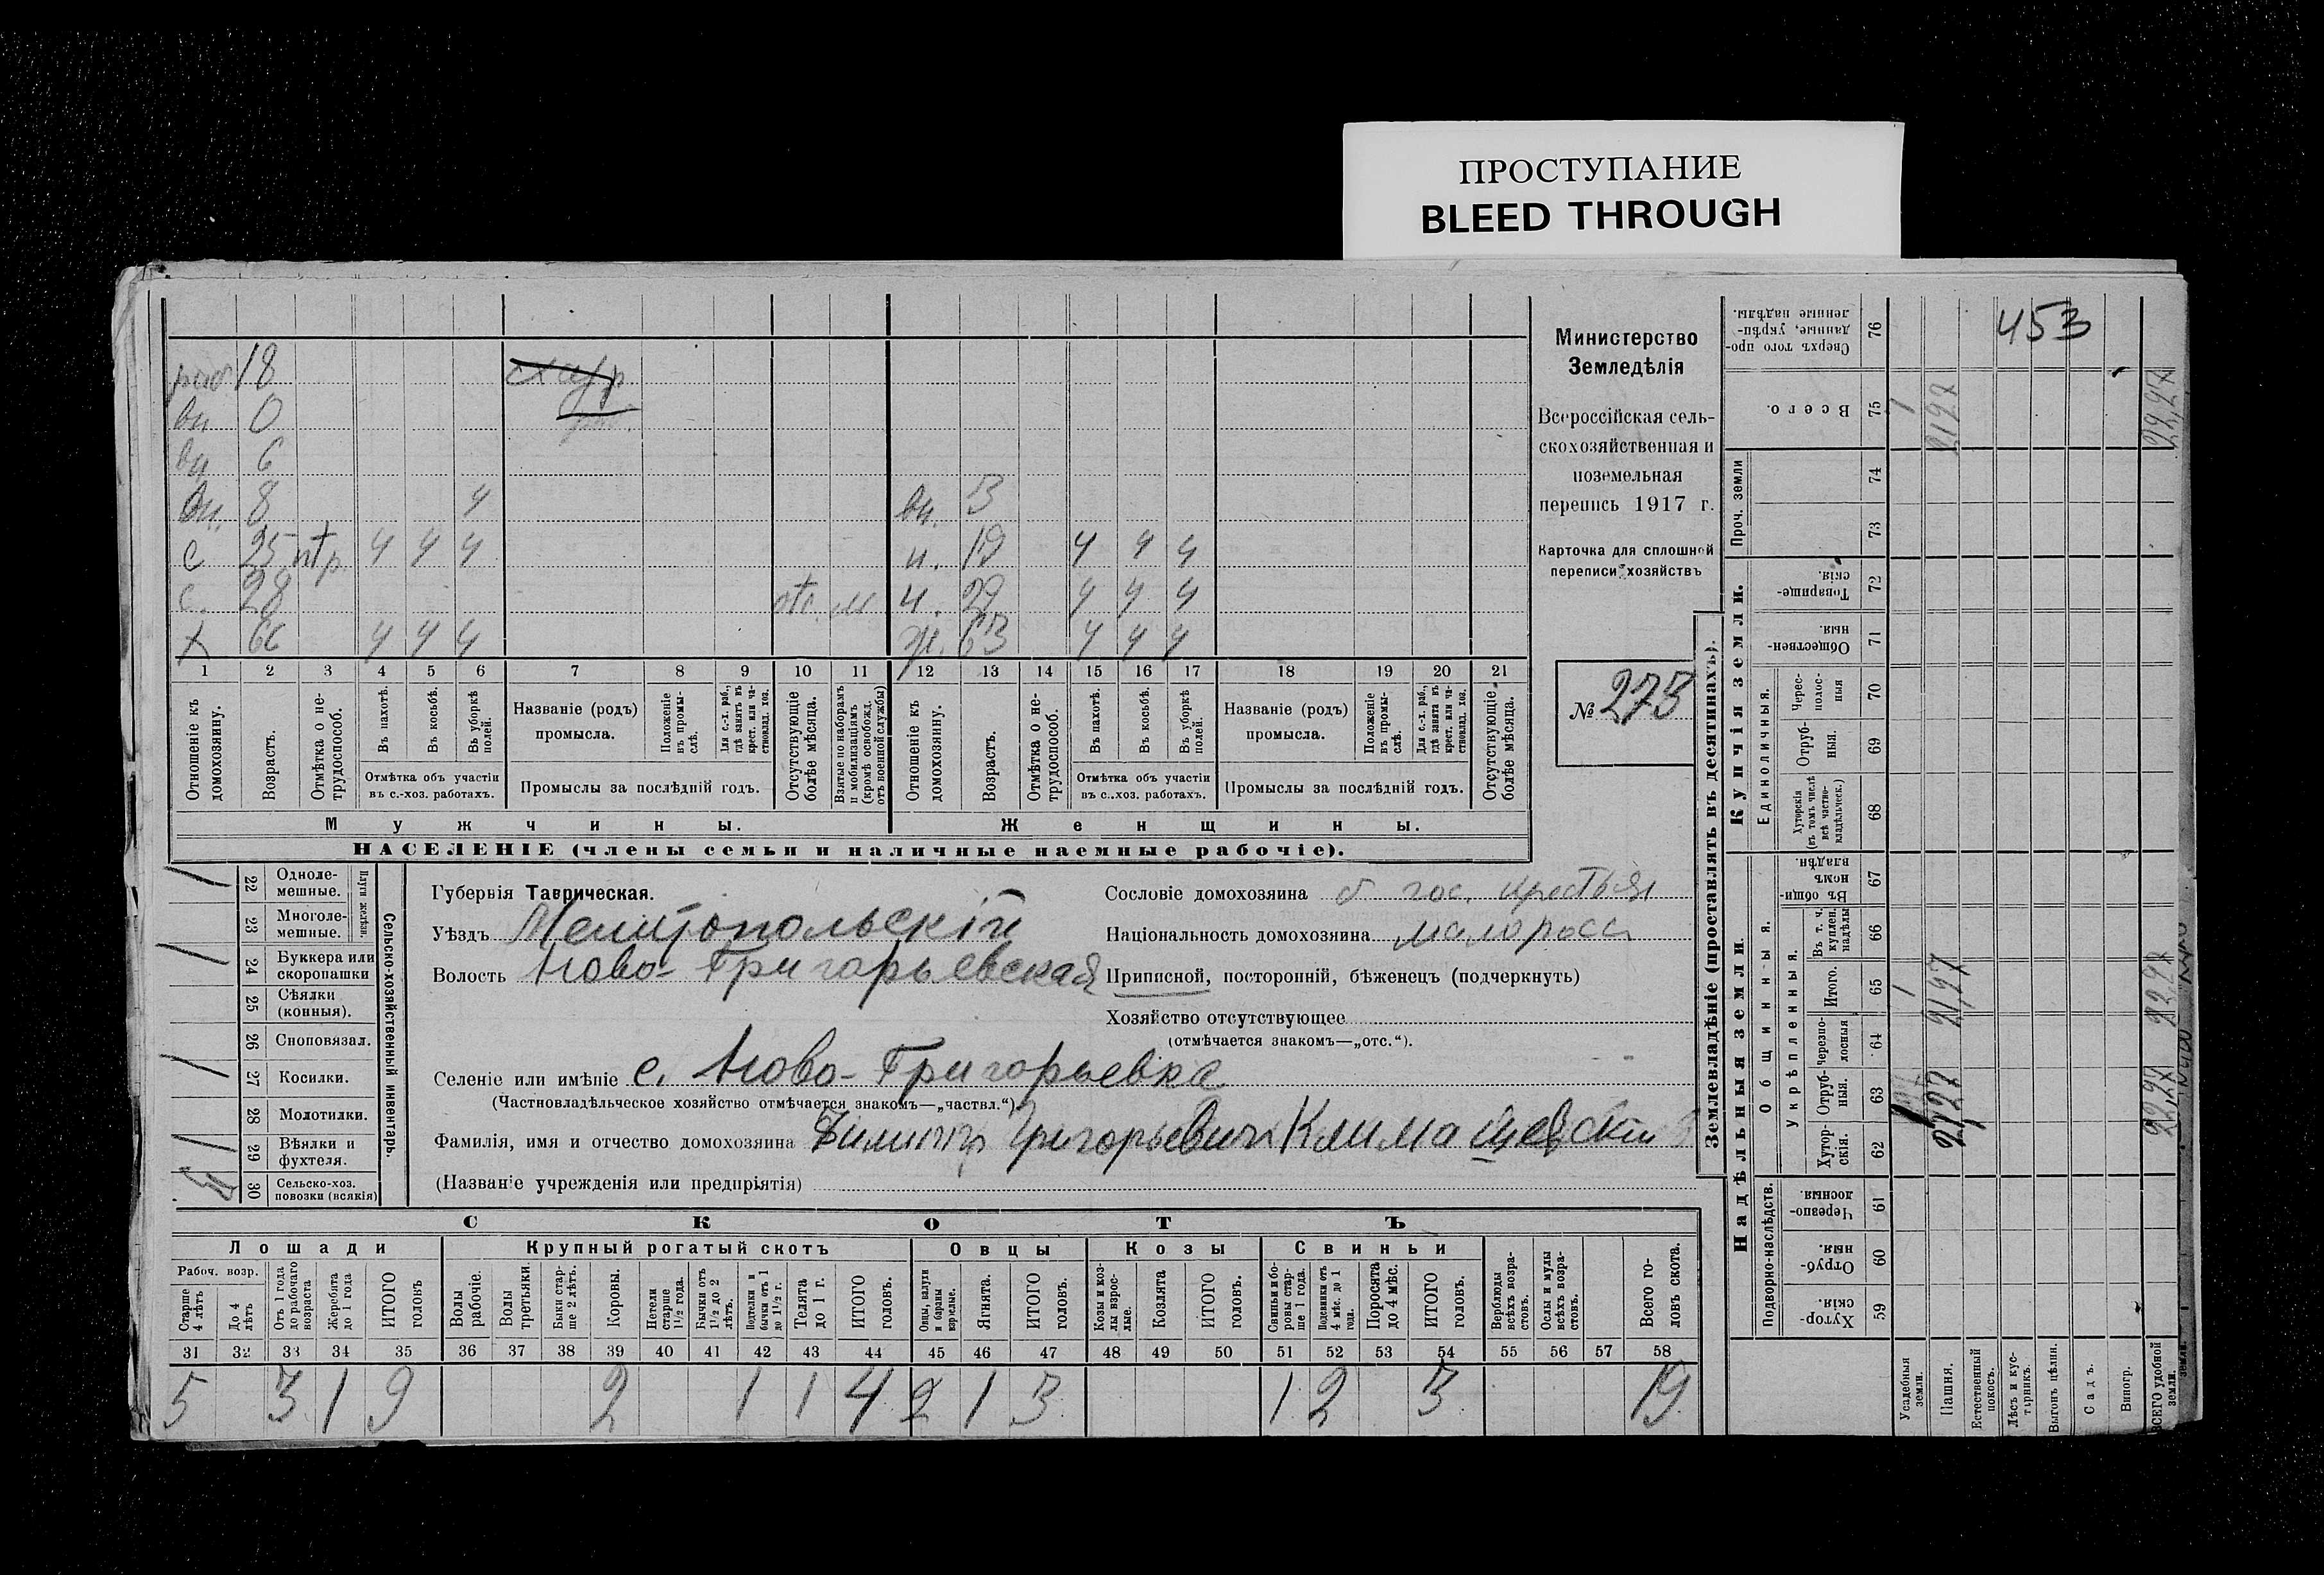 ПРОСТУПАНИЕ
BLEED THROUGH
453
раб. 18
вн 0
вн 6
вн. 8 ч вн. 3
с 25 ч ч ч н. 19 ч ч ч
с. 28 отс. м н. 29 ч ч ч
х 66 ч ч ч ж. 63 ч ч ч
1 2 3 4 5 6 7 8 9 10 11 12 13 14 15 16 17 18 19 20 21
Отношеніе къ домохозяину.
Возрастъ.
Отмѣтка о не-трудоспособ.
Въ пахотѣ.
Въ косьбѣ.
Въ уборкѣ полей.
Отмѣтка объ участіи въ с.-хоз. работахъ.
Названіе (родъ) промысла.
Положеніе въ промы-слѣ.
Для с.-х. раб., гдѣ занятъ въ крест. или ча-стновлад. хоз.
Промыслы за послѣдній годъ.
Отсутствующіе болѣе мѣсяца.
Взятые по наборамъ и мобилизаціямъ (кромѣ освобожд. отъ военной службы)
Отношеніе къ домохозяину.
Возрастъ.
Отмѣтка о не-трудоспособ.
Въ пахотѣ.
Въ косьбѣ.
Въ уборкѣ полей.
Отмѣтка объ участіи въ с.-хоз. работахъ.
Названіе (родъ) промысла.
Положеніе въ промы-слѣ.
Для с.-х. раб., гдѣ занята въ крест. или ча-стновлад. хоз.
Промыслы за послѣдній годъ.
Отсутствующіе болѣе мѣсяца.
Мужчины. Женщины.
НАСЕЛЕНІЕ (члены семьи и наличные наемные рабочіе).
Министерство
Земледѣлія
Всероссійская сель-
скохозяйственная и
поземельная
перепись 1917 г.
Карточка для сплошной
переписи хозяйствъ
№ 275
22 Одноле-мешные.
23 Многоле-мешные.
Плуги желѣзн.
24 Буккера или скоропашки
25 Сѣялки (конныя).
26 Сноповязал.
27 Косилки.
28 Молотилки.
29 Вѣялки и фухтеля.
30 Сельско-хоз. повозки (всякія)
Сельско-хозяйственный инвентарь.
Губернія Таврическая.
Уѣздъ Мелитопольскій
Волость Ново-Григорьевская
Селеніе или имѣніе с. Ново-Григорьевка
(Частновладѣльческое хозяйство отмѣчается знакомъ—„частвл.“)
Фамилія, имя и отчество домохозяина Григорьевич Климашевскій
(Названіе учрежденія или предпріятія)
Сословіе домохозяина б гос. крестьян
Національность домохозяина малоросс
Приписной, посторонній, бѣженецъ (подчеркнуть)
Хозяйство отсутствующее
(отмѣчается знакомъ—„отс.“).
СКОТЪ
Лошади Крупный рогатый скотъ Овцы Козы Свиньи
Рабоч. возр.
Старше 4 лѣтъ
До 4 лѣтъ
Отъ 1 года до рабочаго возраста
Жеребята до 1 года
ИТОГО головъ
Волы рабочіе.
Волы третьяки.
Быки стар-ше 2 лѣтъ.
Коровы.
Нетели старше 1½ года.
Бычки отъ 1½ до 2 лѣтъ.
Подтелки и бычки отъ 1 до 1½ г.
Телята до 1 г.
ИТОГО головъ.
Овцы, валухи и бараны взрослые.
Ягнята.
ИТОГО головъ.
Козы и коз-лы взрос-лые.
Козлята
ИТОГО головъ.
Свиньи и бо-ровы стар-ше 1 года.
Подсвинки отъ 4 мѣс. до 1 года.
Поросята до 4 мѣс.
ИТОГО головъ.
Верблюды всѣхъ возра-стовъ.
Ослы и мулы всѣхъ возра-стовъ.
Всего го-ловъ скота.
31 32 33 34 35 36 37 38 39 40 41 42 43 44 45 46 47 48 49 50 51 52 53 54 55 56 57 58
5 3 1 9 2 1 1 4 2 1 3 1 2 3 19
Землевладѣніе (проставлять въ десятинахъ).
Надѣльныя земли. Купчія земли.
Подворно-наслѣдств.
Общинныя.
Укрѣпленныя.
Единоличныя.
Проч. земли
Хутор-скія. 59
Отруб-ныя. 60
Черезпо-лосныя. 61
Хутор-скія. 62
Отруб-ныя. 63
Черезпо-лосныя 64
Итого. 65
Въ т. ч. куплен. надѣлы 66
Въ общи-номъ владѣн. 67
Хуторскія (въ томъ числѣ всѣ частно-владѣльческ.) 68
Отруб-ныя. 69
Черес-полос-ныя 70
Обществен-ныя 71
Товарище-скія. 72
73
74
Всего. 75
Сверхъ того про-данные, укрѣп-ленные надѣлы. 76
Усадебныя земли.
Пашня. 21,27 21,27
Естественный покосъ.
Лѣсъ и кус-тарникъ.
Выгонъ цѣлин.
Садъ.
Виногр.
ВСЕГО удобной земли. 22,27 22,27 22,27